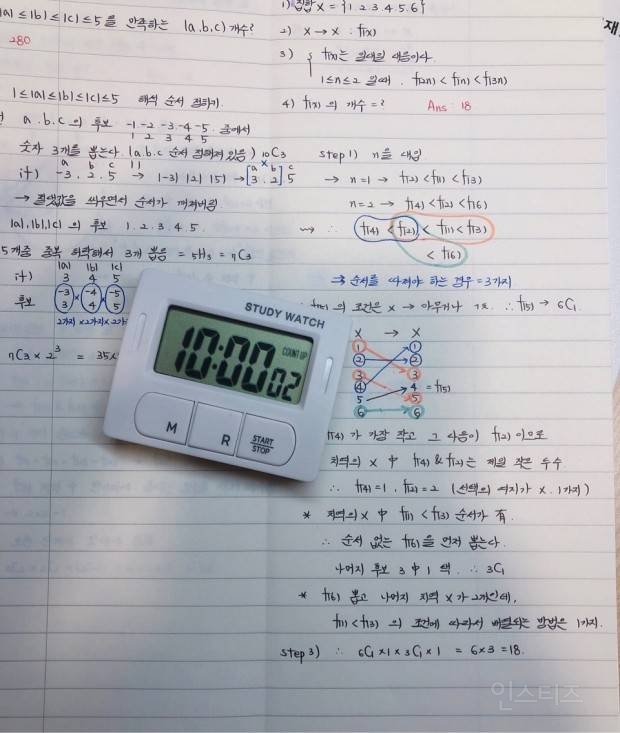 1≤|a|≤|b|≤|c|≤5 를 만족하는 (a.b.c) 개수?
280
1≤|a|≤|b|≤|c|≤5 해석 순서 정하기.
a.b.c의 후보 -1 -2 -3 -4 -5 중에서
1 2 3 4 5
숫자 3개를 뽑는다. (a.b.c 순서 정해져 있음) 10C3
a b c
i+) -3. 2. 5 → |-3| |2| |5| → [3. 2] 5
→ 절댓값을 씌우면서 순서가
|a|,|b|,|c| 의 후보 1. 2. 3. 4. 5.
5개중 중복 허락해서 3개 뽑음 = 5H3 = 7C3
|a| |b| |c|
i+) 3 4 5
후보 -3 × -4 × -5
3 4 5
2가지 ×2가지×2가
7C3 × 2³ = 35×
STUDY WATCH
10:00 02
COUNT UP
M
R
START
STOP
1) 집합 X = {1. 2. 3. 4. 5. 6}
2) X → X : f(x)
3) f(x)는 일대일 대응이다.
1≤n≤2 일때, f(2n) < f(n) < f(3n)
4) f(x) 의 개수 = ? Ans: 18
step 1) n을 대입
→ n=1 → f(2) < f(1) < f(3)
n=2 → f(4) < f(2) < f(6)
∴ f(4) < f(2) < f(1) < f(3)
< f(6)
⇒ 순서를 따져야 하는 경우 = 3가지
의 조건은 X → 아무거나 1개. ∴ f(5) → 6C1
X → X
1 1
2 2
3 3
4 4 = f(5)
5 5
6 6
f(4) 가 가장 작고 그 다음이 f(2) 이므로
치역의 X 中 f(4) & f(2)는 제일 작은 두수
∴ f(4)=1, f(2)=2 (선택의 여지가 X. 1가지)
* 치역의 X 中 f(1) < f(3) 순서가 有.
∴ 순서 없는 f(6)을 먼저 뽑는다.
나머지 후보 3 中 1 택. ∴ 3C1
* f(6) 뽑고 나머지 치역 X가 2개인데,
f(1) < f(3) 의 조건에 따라서 배열되는 방법은 1가지.
step 3) ∴ 6C1 ×1 × 3C1 ×1 = 6×3 = 18.
재
인스티즈